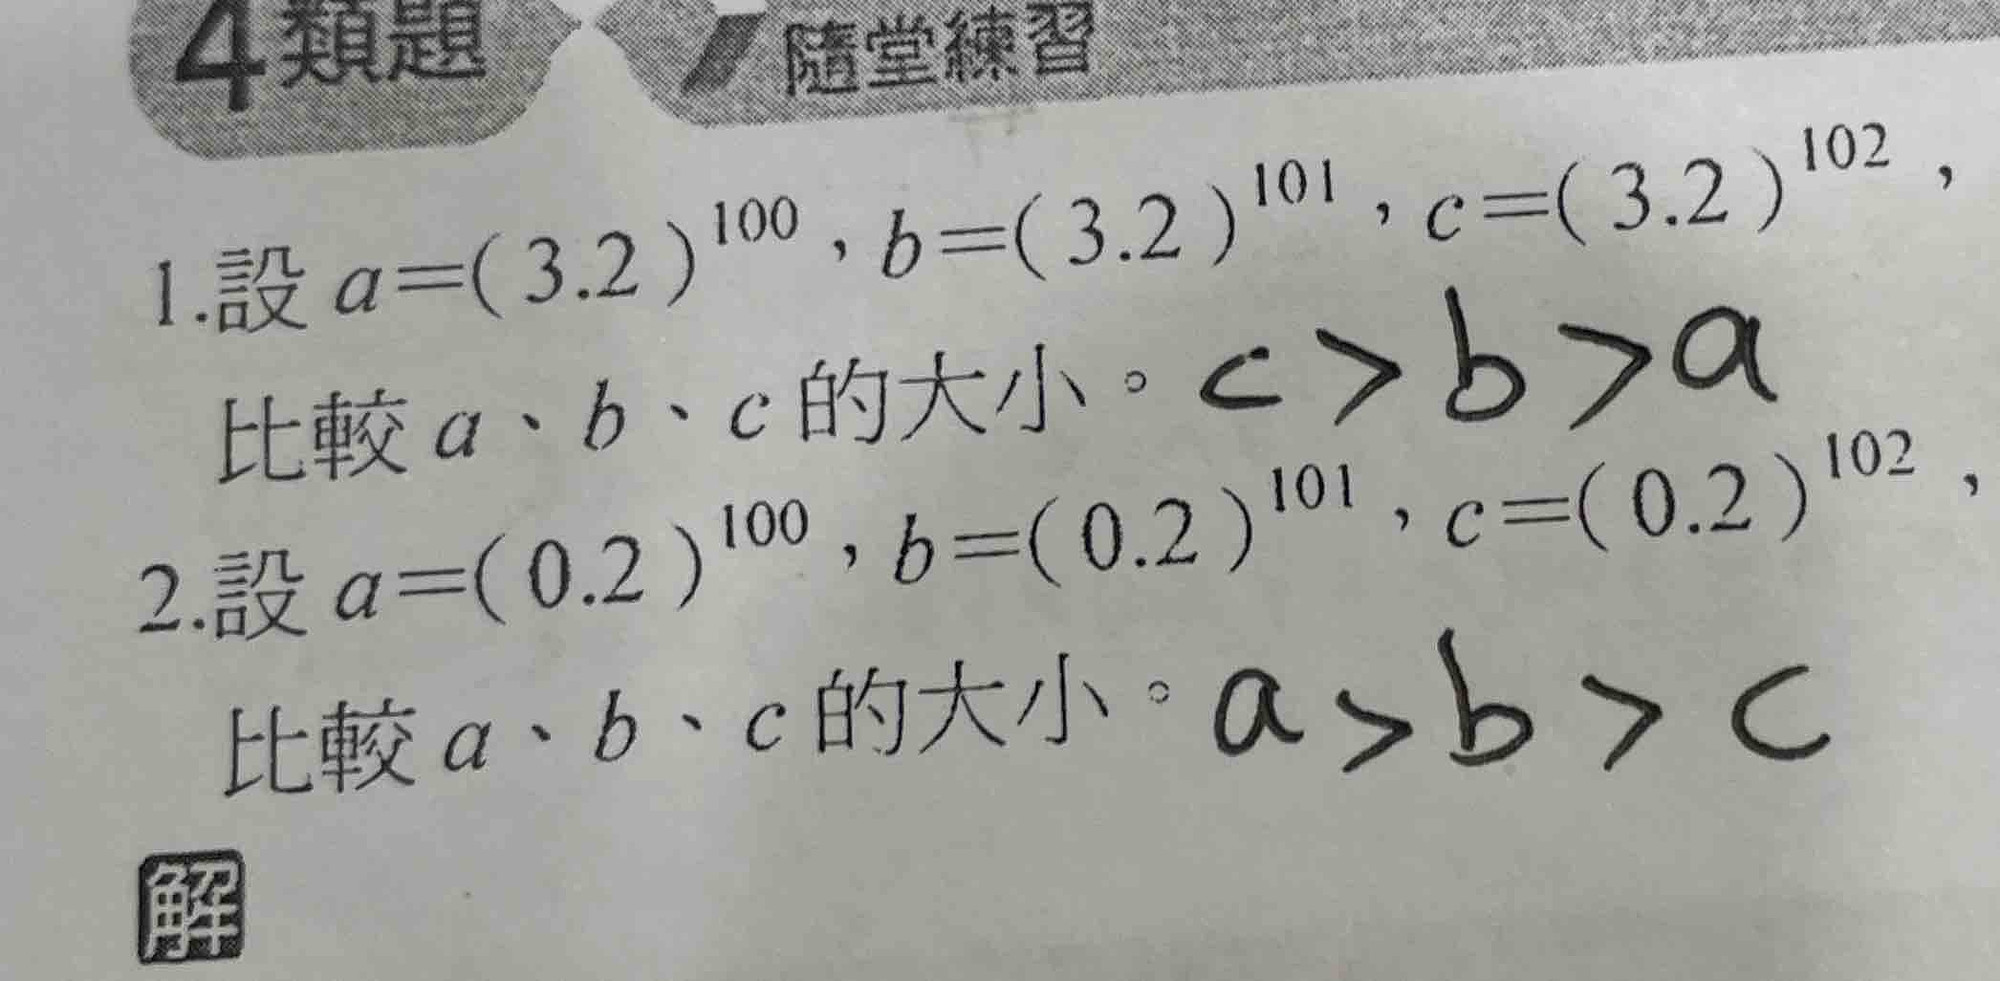 4類題 隨堂練習
1.設 a=(3.2)^100,b=(3.2)^101,c=(3.2)^102,
比較 a、b、c 的大小。c>b>a
2.設 a=(0.2)^100,b=(0.2)^101,c=(0.2)^102,
比較 a、b、c 的大小。a>b>c
解